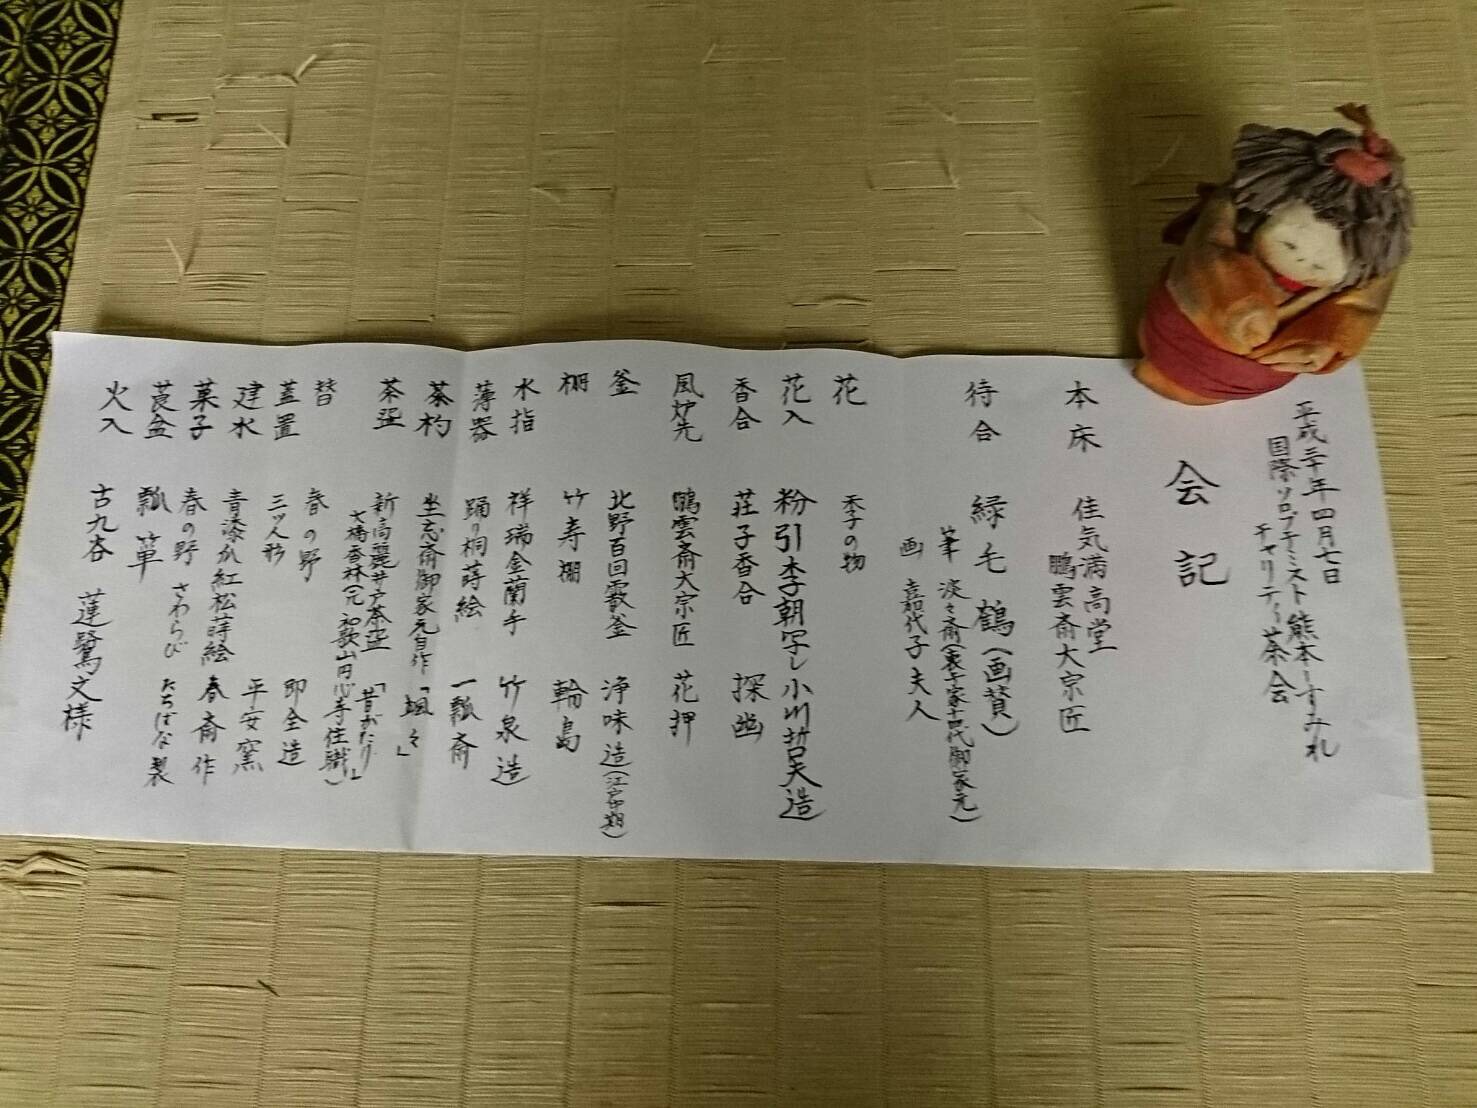 平成三十年四月七日
国際ソロプチミスト熊本ーすみれ
チャリティー茶会
会記
本床 佳気満高堂
鵬雲斎大宗匠
待合 緑毛鶴(画賛)
筆 淡々斎(裏千家十四代御家元)
画 嘉代子夫人
花 季の物
花入 粉引李朝写し 小川哲天造
香合 荘子香合 探幽
風炉先 鵬雲斎大宗匠 花押
釜 北野百回霰釜 浄味造(江戸中期)
棚 竹寿棚 輪島
水指 祥瑞金蘭手 竹泉造
薄器 踊り桐蒔絵 一瓢斎
茶杓 坐忘斎御家元自作「颯々」
茶盌 新高麗井戸茶盌 「昔がたり」
大橋香林(元和歌山円心寺住職)
替 春の野 即全造
蓋置 三ッ人形 平安窯
建水 青漆爪紅松蒔絵 春斎作
菓子 春の野 さわらび たちばな製
莨盆 瓢箪
火入 古九谷 蓮鷺文様